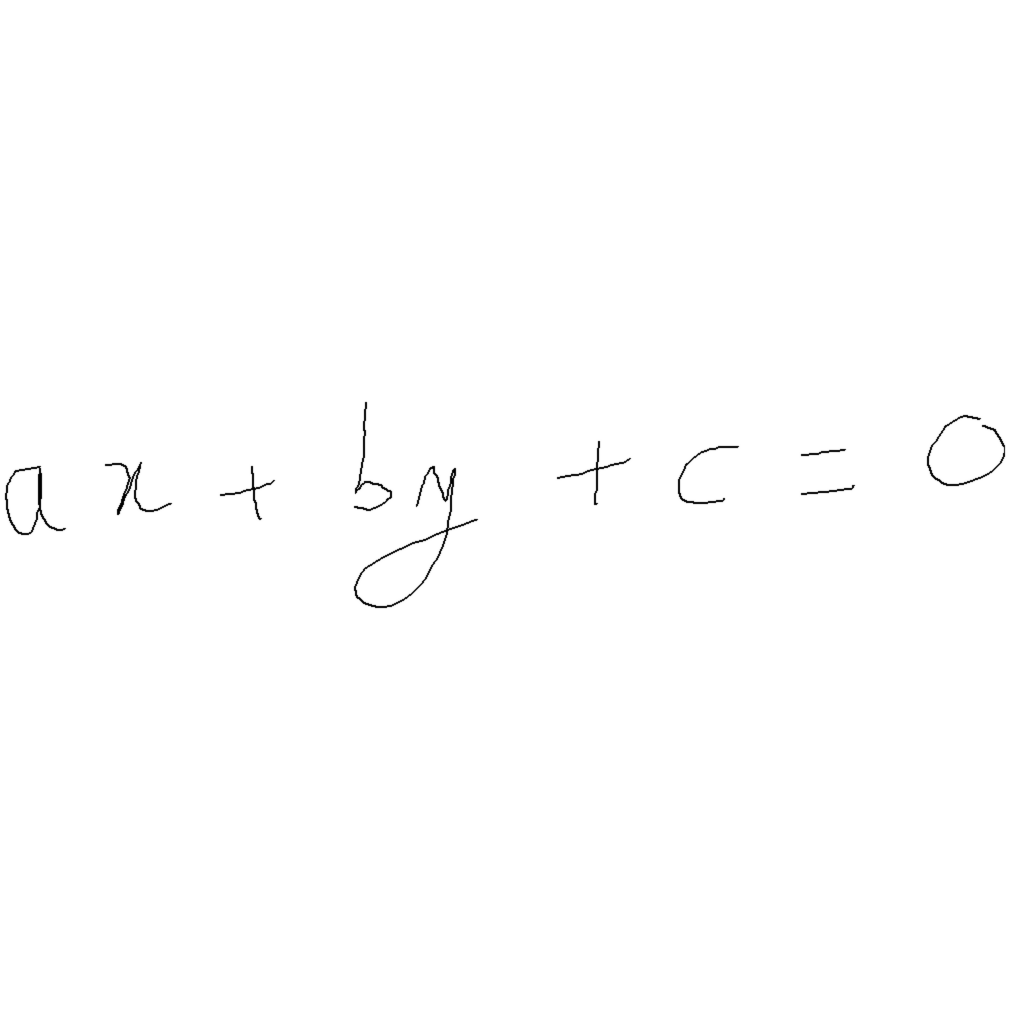 ax + by + c = 0